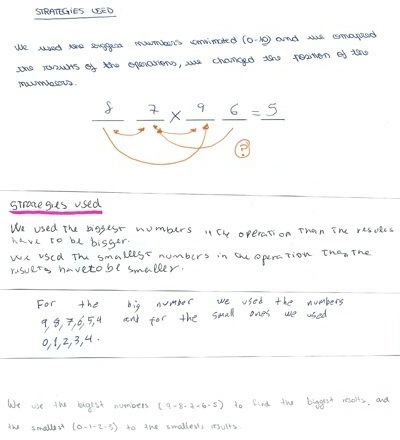 STRATEGIES USED
We used the biggest numbers (0-10) and we compared
the results of the operations, we changed the position of the
numbers.
8 7 x 9 6 = 5
?
Strategies used
We used the biggest numbers in the operation than the resules
have to be bigger.
We used the smallest numbers in the operation than the
results have to be smaller.
For the big number we used the numbers
9,8,7,6,5,4 and for the small ones we used
0,1,2,3,4.
We use the bigest numbers (9-8-7-6-5) to find the biggest resolts, and
the smallest (0-1-2-3) to the smallests results.